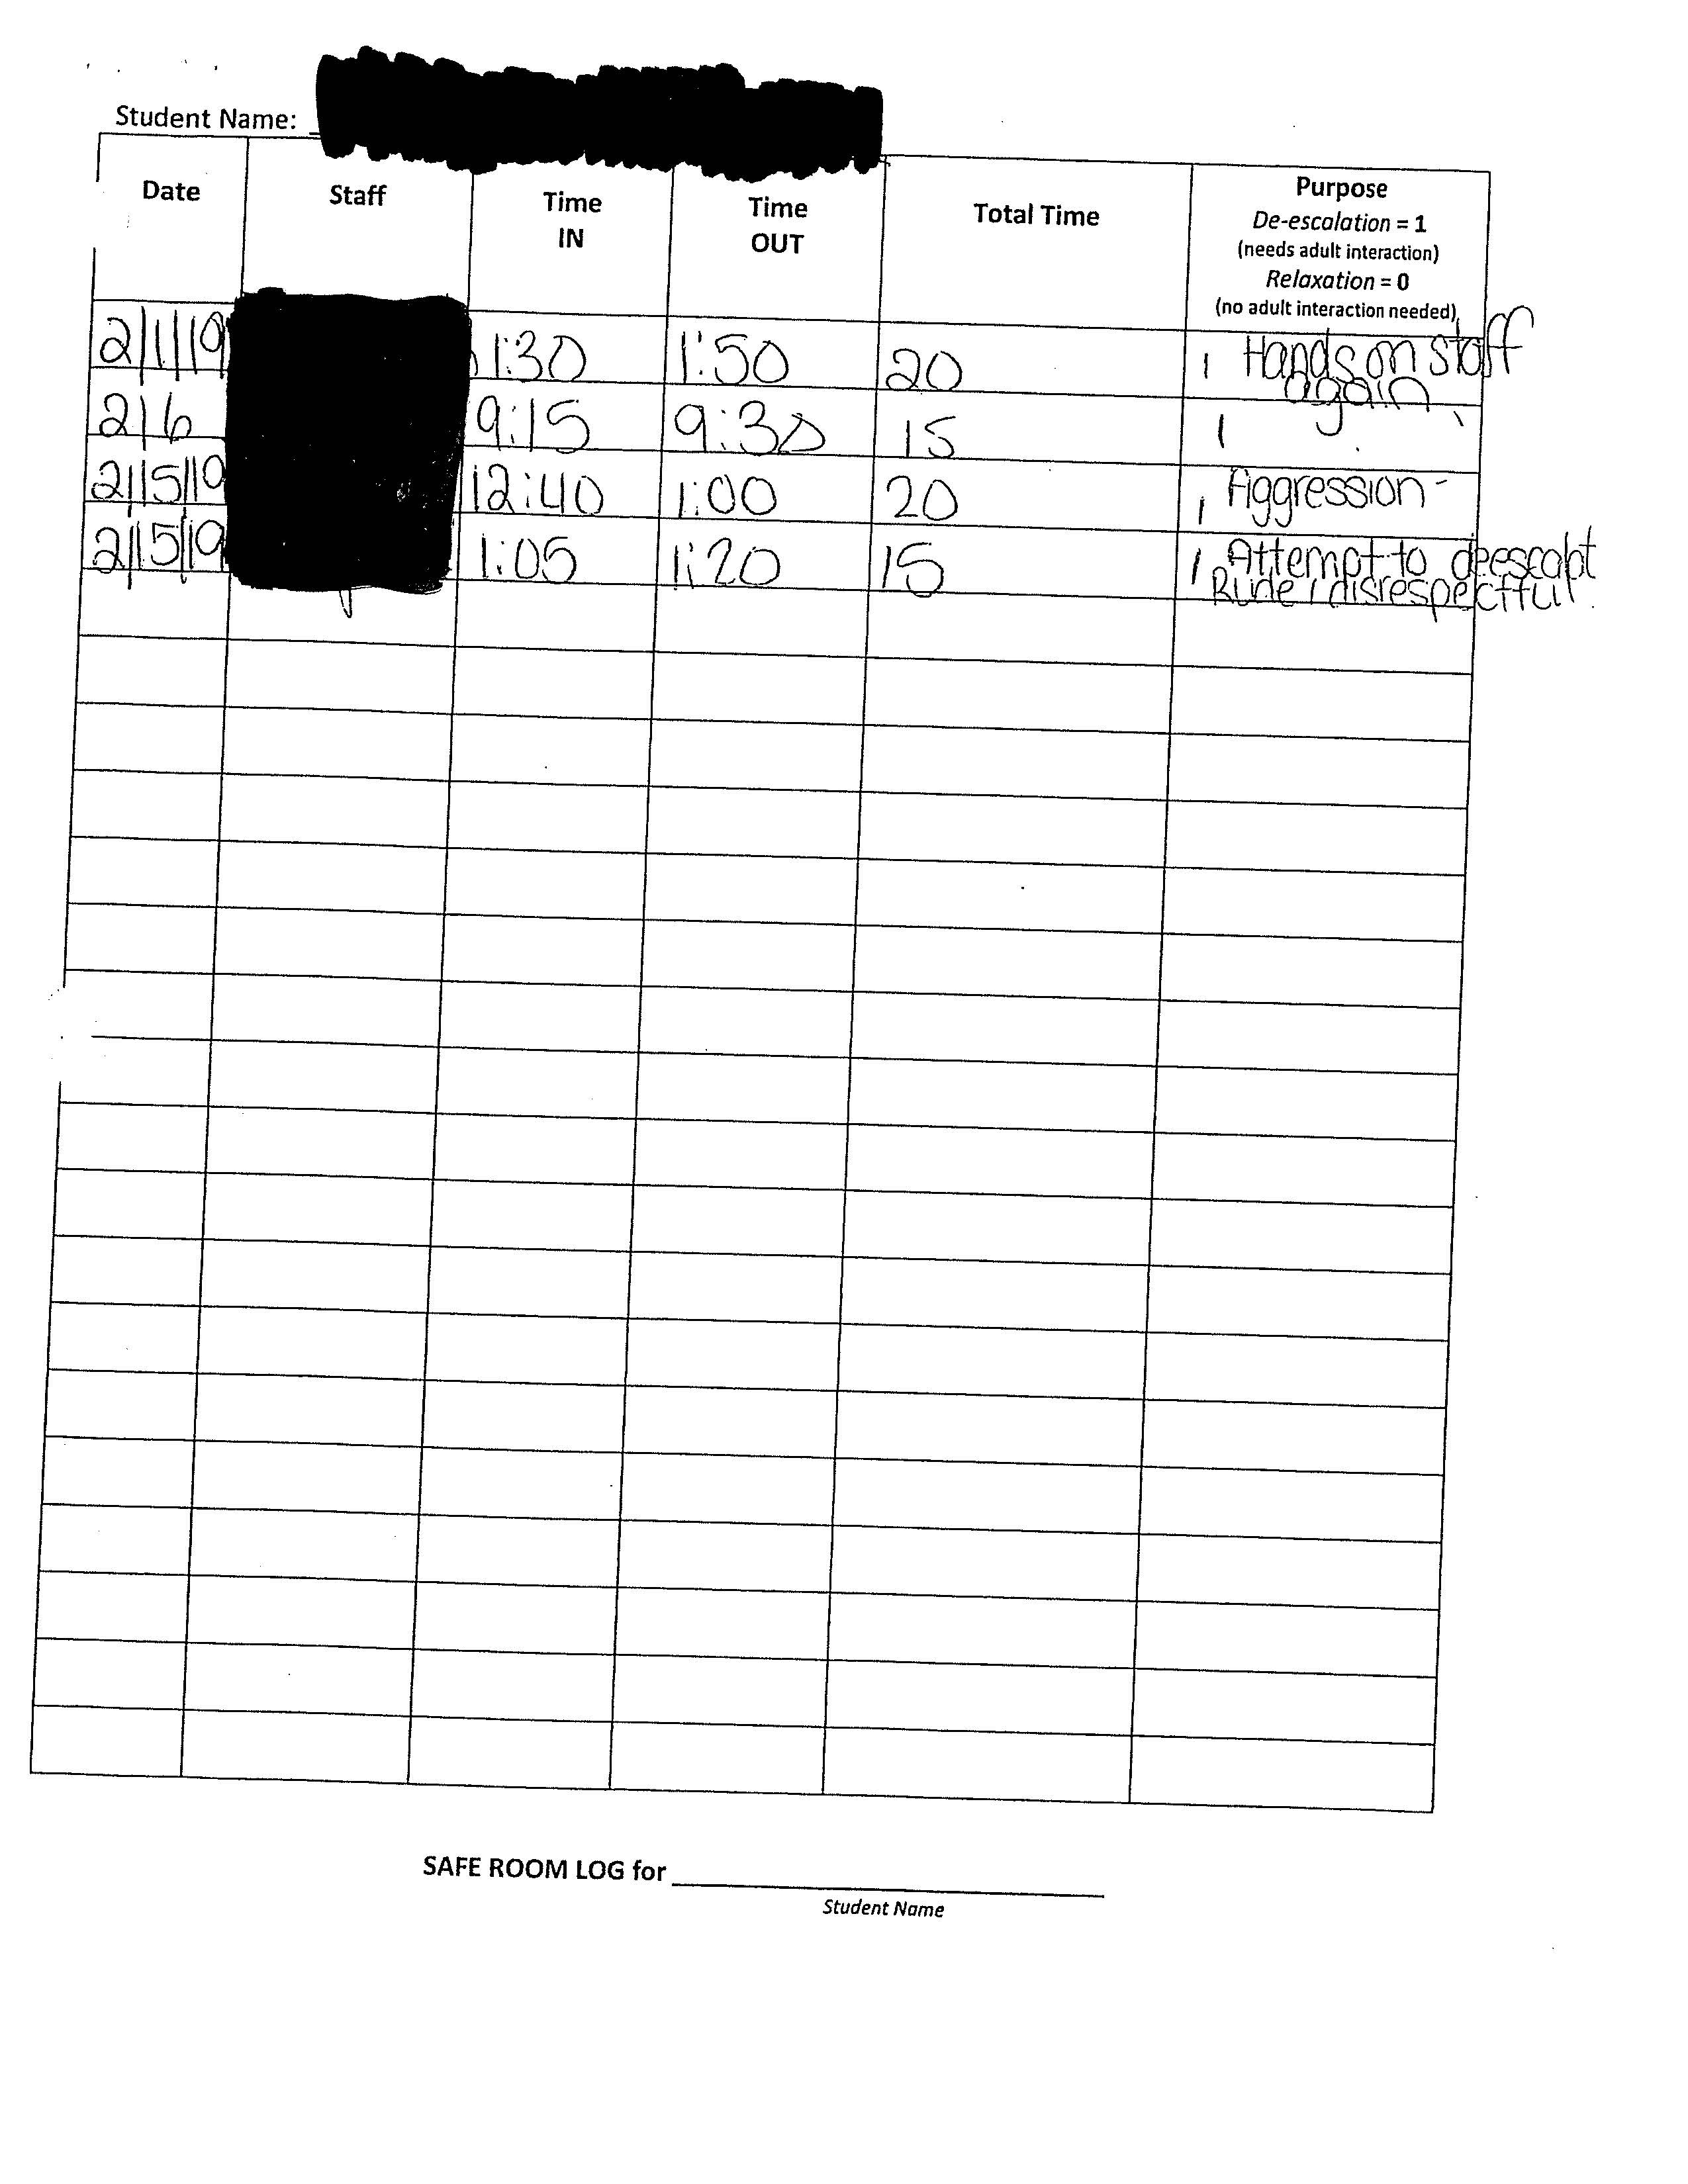 Student Name:
Date Staff Time IN Time OUT Total Time Purpose
De-escalation = 1
(needs adult interaction)
Relaxation = 0
(no adult interaction needed)
2/1/19 1:30 1:50 20 1 Hands on staff
again
2/6 9:15 9:30 15 1
2/15/19 12:40 1:00 20 1 Aggression-
2/15/19 1:05 1:20 15 1 Attempt to
Rude, disrespectful.
SAFE ROOM LOG for
Student Name